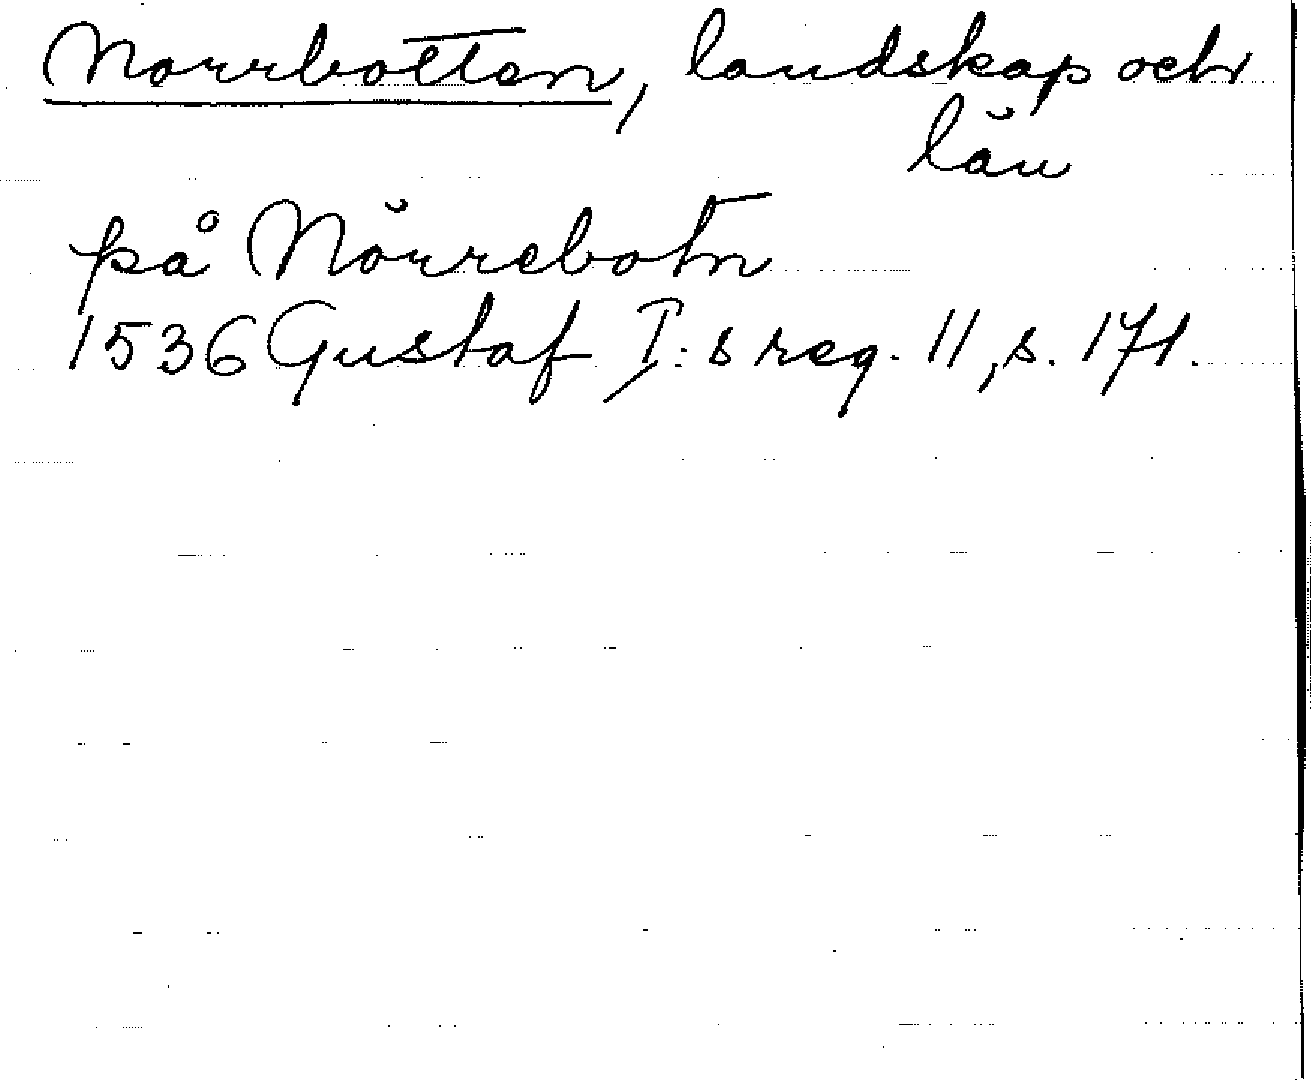 Norrbotten, landskap och
län
på Nörrebotn
1536 Gustaf I:s reg. 11, s. 171.